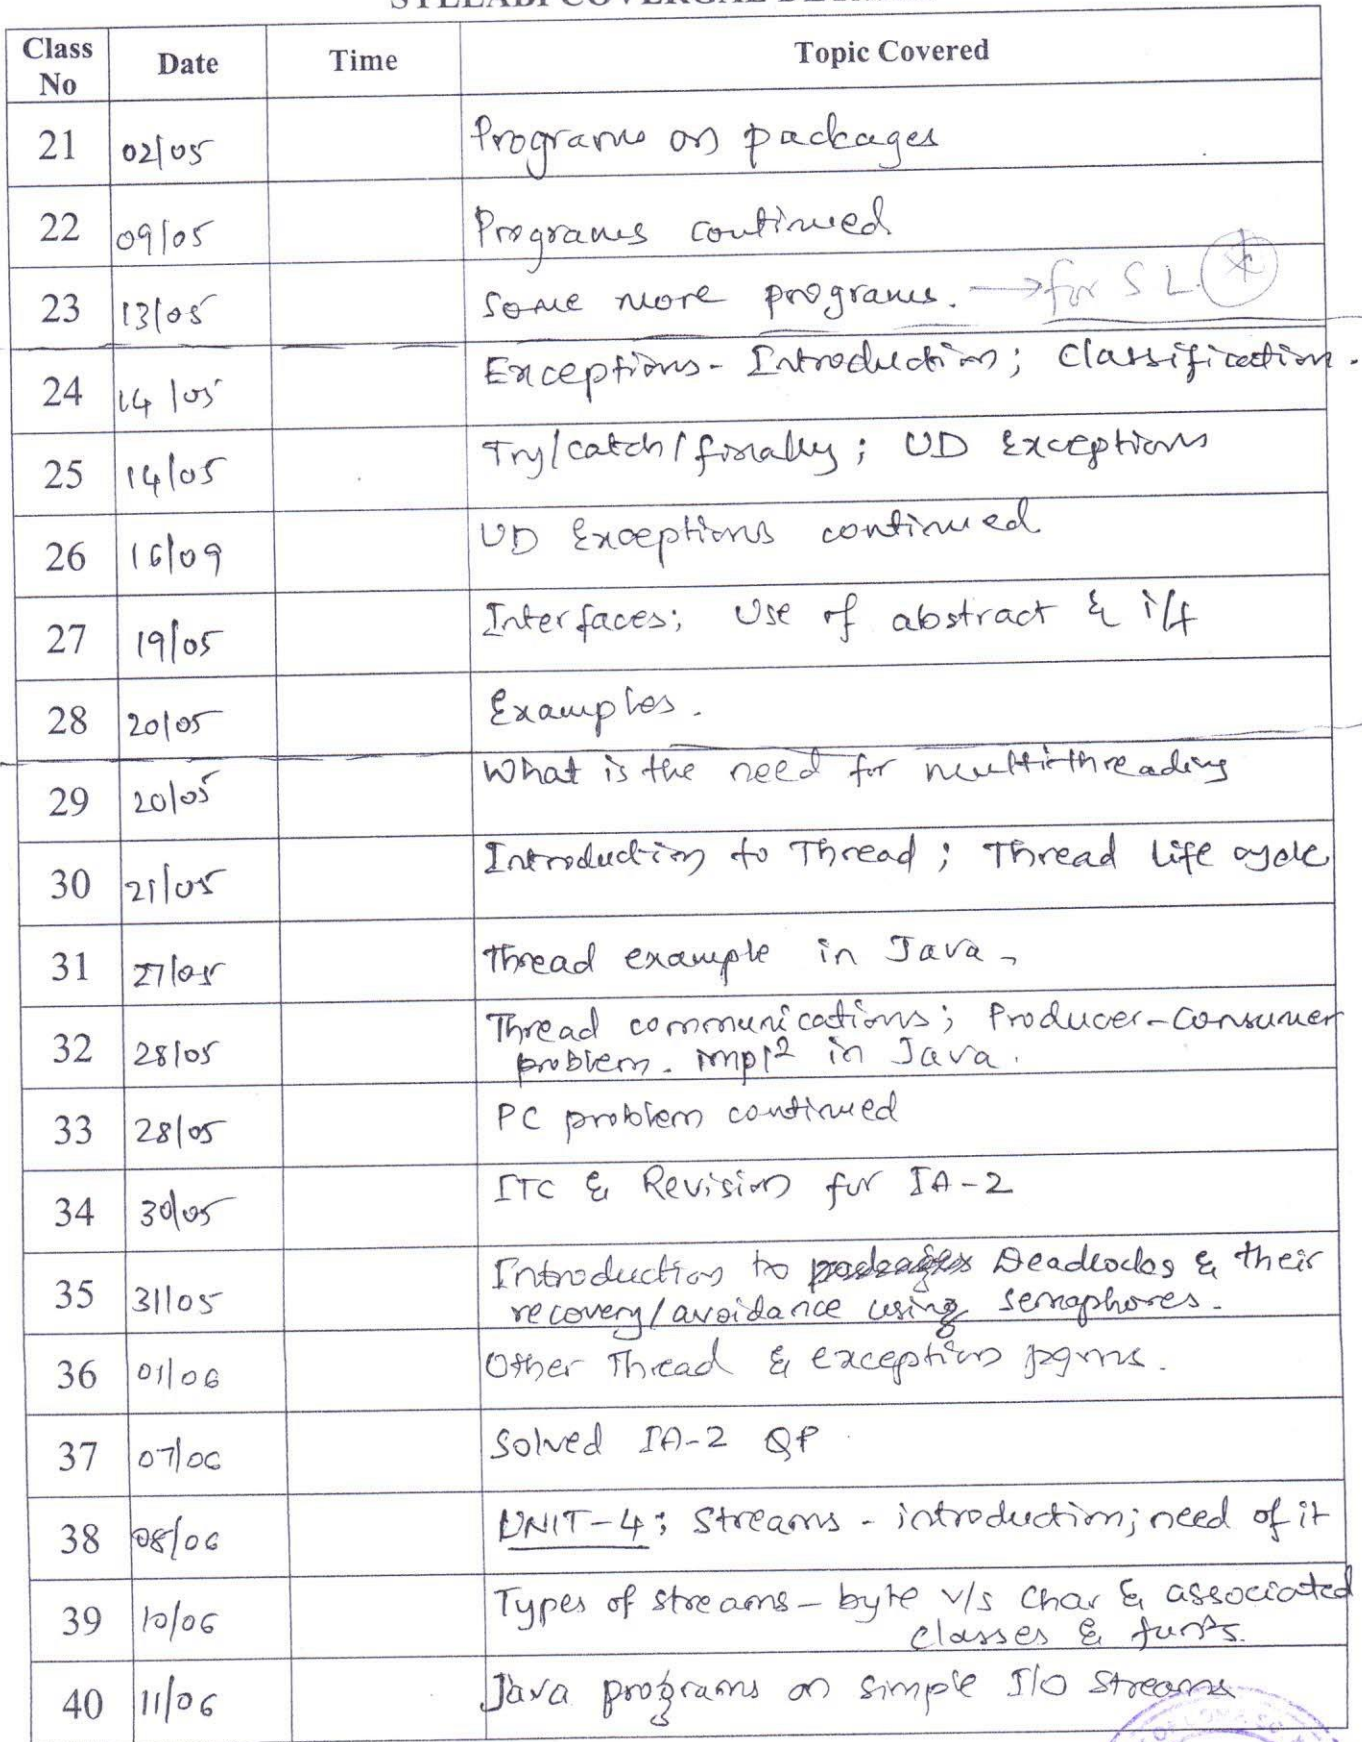 SYLLABI COVERGAE
Class No Date Time Topic Covered
21 02/05 Programs on packages
22 09/05 Programs continued
23 13/05 Some more programs. → for S L. *
24 14/05 Exceptions - Introduction; Classification.
25 14/05 Try/catch/finally; UD Exceptions
26 16/09 UD Exceptions continued
27 19/05 Interfaces; Use of abstract & i/f
28 20/05 Examples.
29 20/05 What is the need for multithreading
30 21/05 Introduction to Thread; Thread Life cycle
31 27/05 Thread example in Java -
32 28/05 Thread communications; Producer-Consumer
problem. impl² in Java.
33 28/05 PC problem continued
34 30/05 ITC & Revision for IA-2
35 31/05 Introduction to Deadlocks & their
recovery/avoidance using semaphores.
36 01/06 Other Thread & exception pgms.
37 07/06 Solved IA-2 QP
38 08/06 UNIT-4: Streams - introduction; need of it
39 10/06 Types of streams - byte v/s char & associated
classes & funⁿs.
40 11/06 Java programs on simple I/O Streams